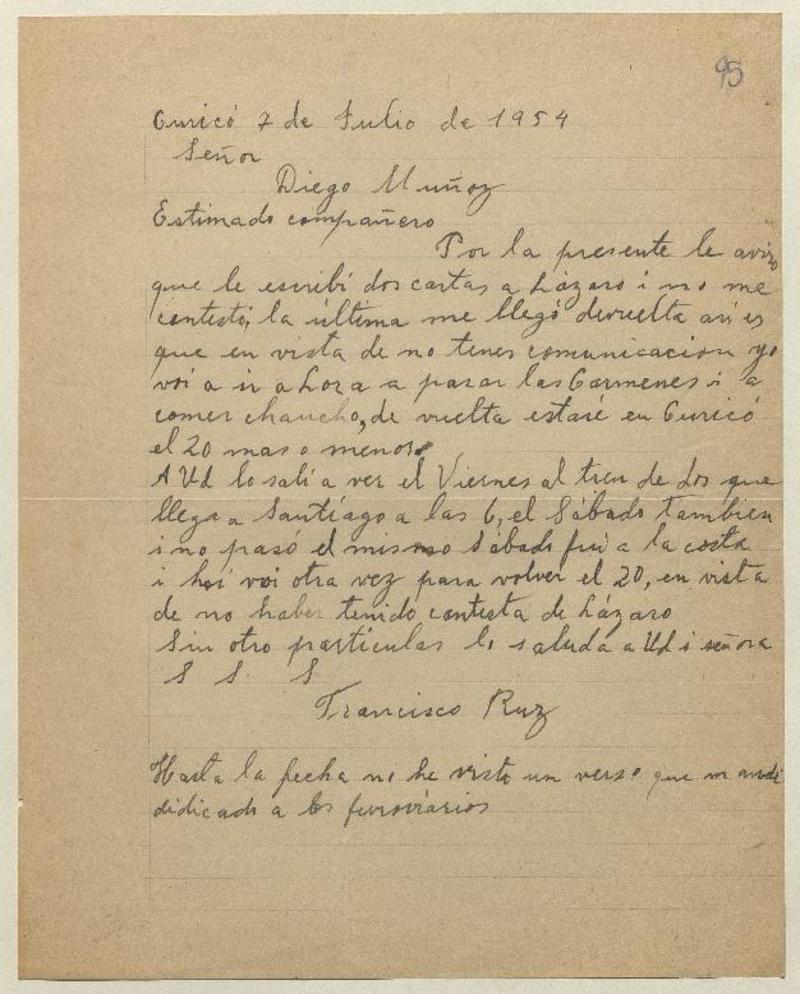 95
Curicó 7 de Julio de 1954
Señor
Diego Muñoz
Estimado compañero
Por la presente le avizo
que le escribí dos cartas a Lázaro i no me
contestó, la última me llegó devuelta asi es
que en vista de no tener comunicacion yo
voi a ir ahora a pasar las Carmenes i a
comer chancho, de vuelta estaré en Curicó
el 20 mas o menos.
A Ud lo salí a ver el Viernes al tren de dos que
llega a Santiago a las 6, el Sábado tambien
i no pasó el mismo Sábado fui a la costa
i hoi voi otra vez para volver el 20, en vista
de no haber tenido contesta de Lázaro
Sin otro particular lo saluda a Ud i señora
S S. S
Francisco Ruz
Hasta la fecha no he visto un verso que mandé
didicado a los ferroviarios